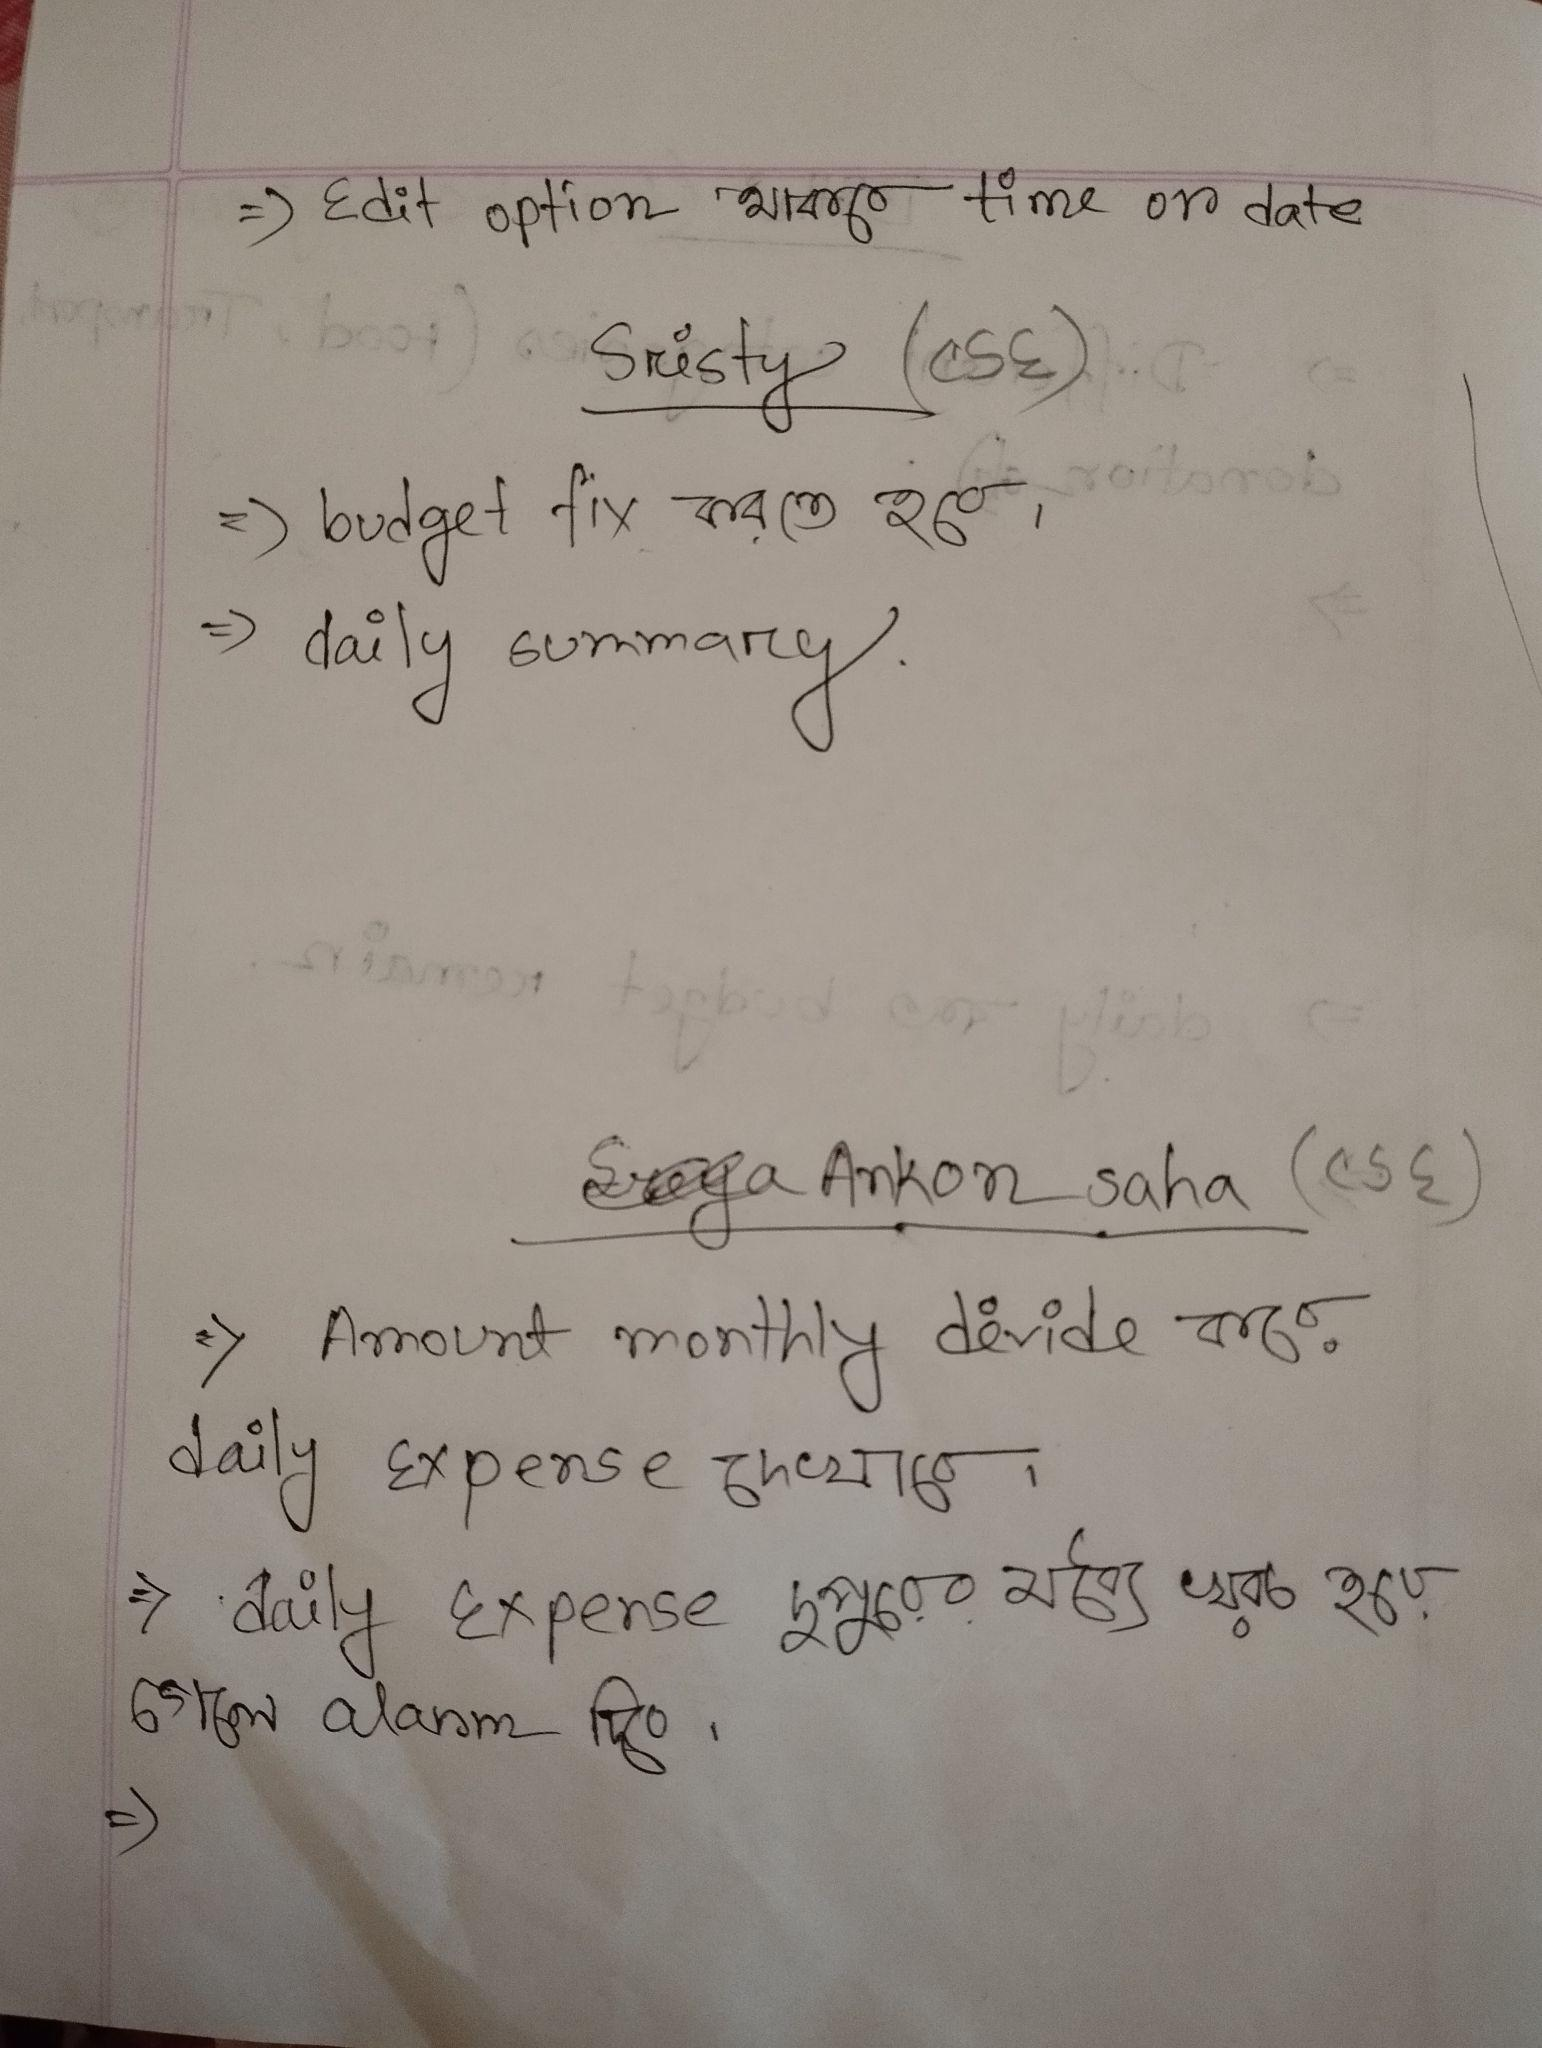 => Edit option থাকবে time or date
Sristy (CSE)
=> budget fix করতে হবে।
=> daily summary.
Ankon saha (CSE)
=> Amount monthly divide করবে
daily Expense দেখাবে।
=> daily Expense দুপুরের মধ্যে খরচ হয়ে
গেলে alarm দিবে।
=>